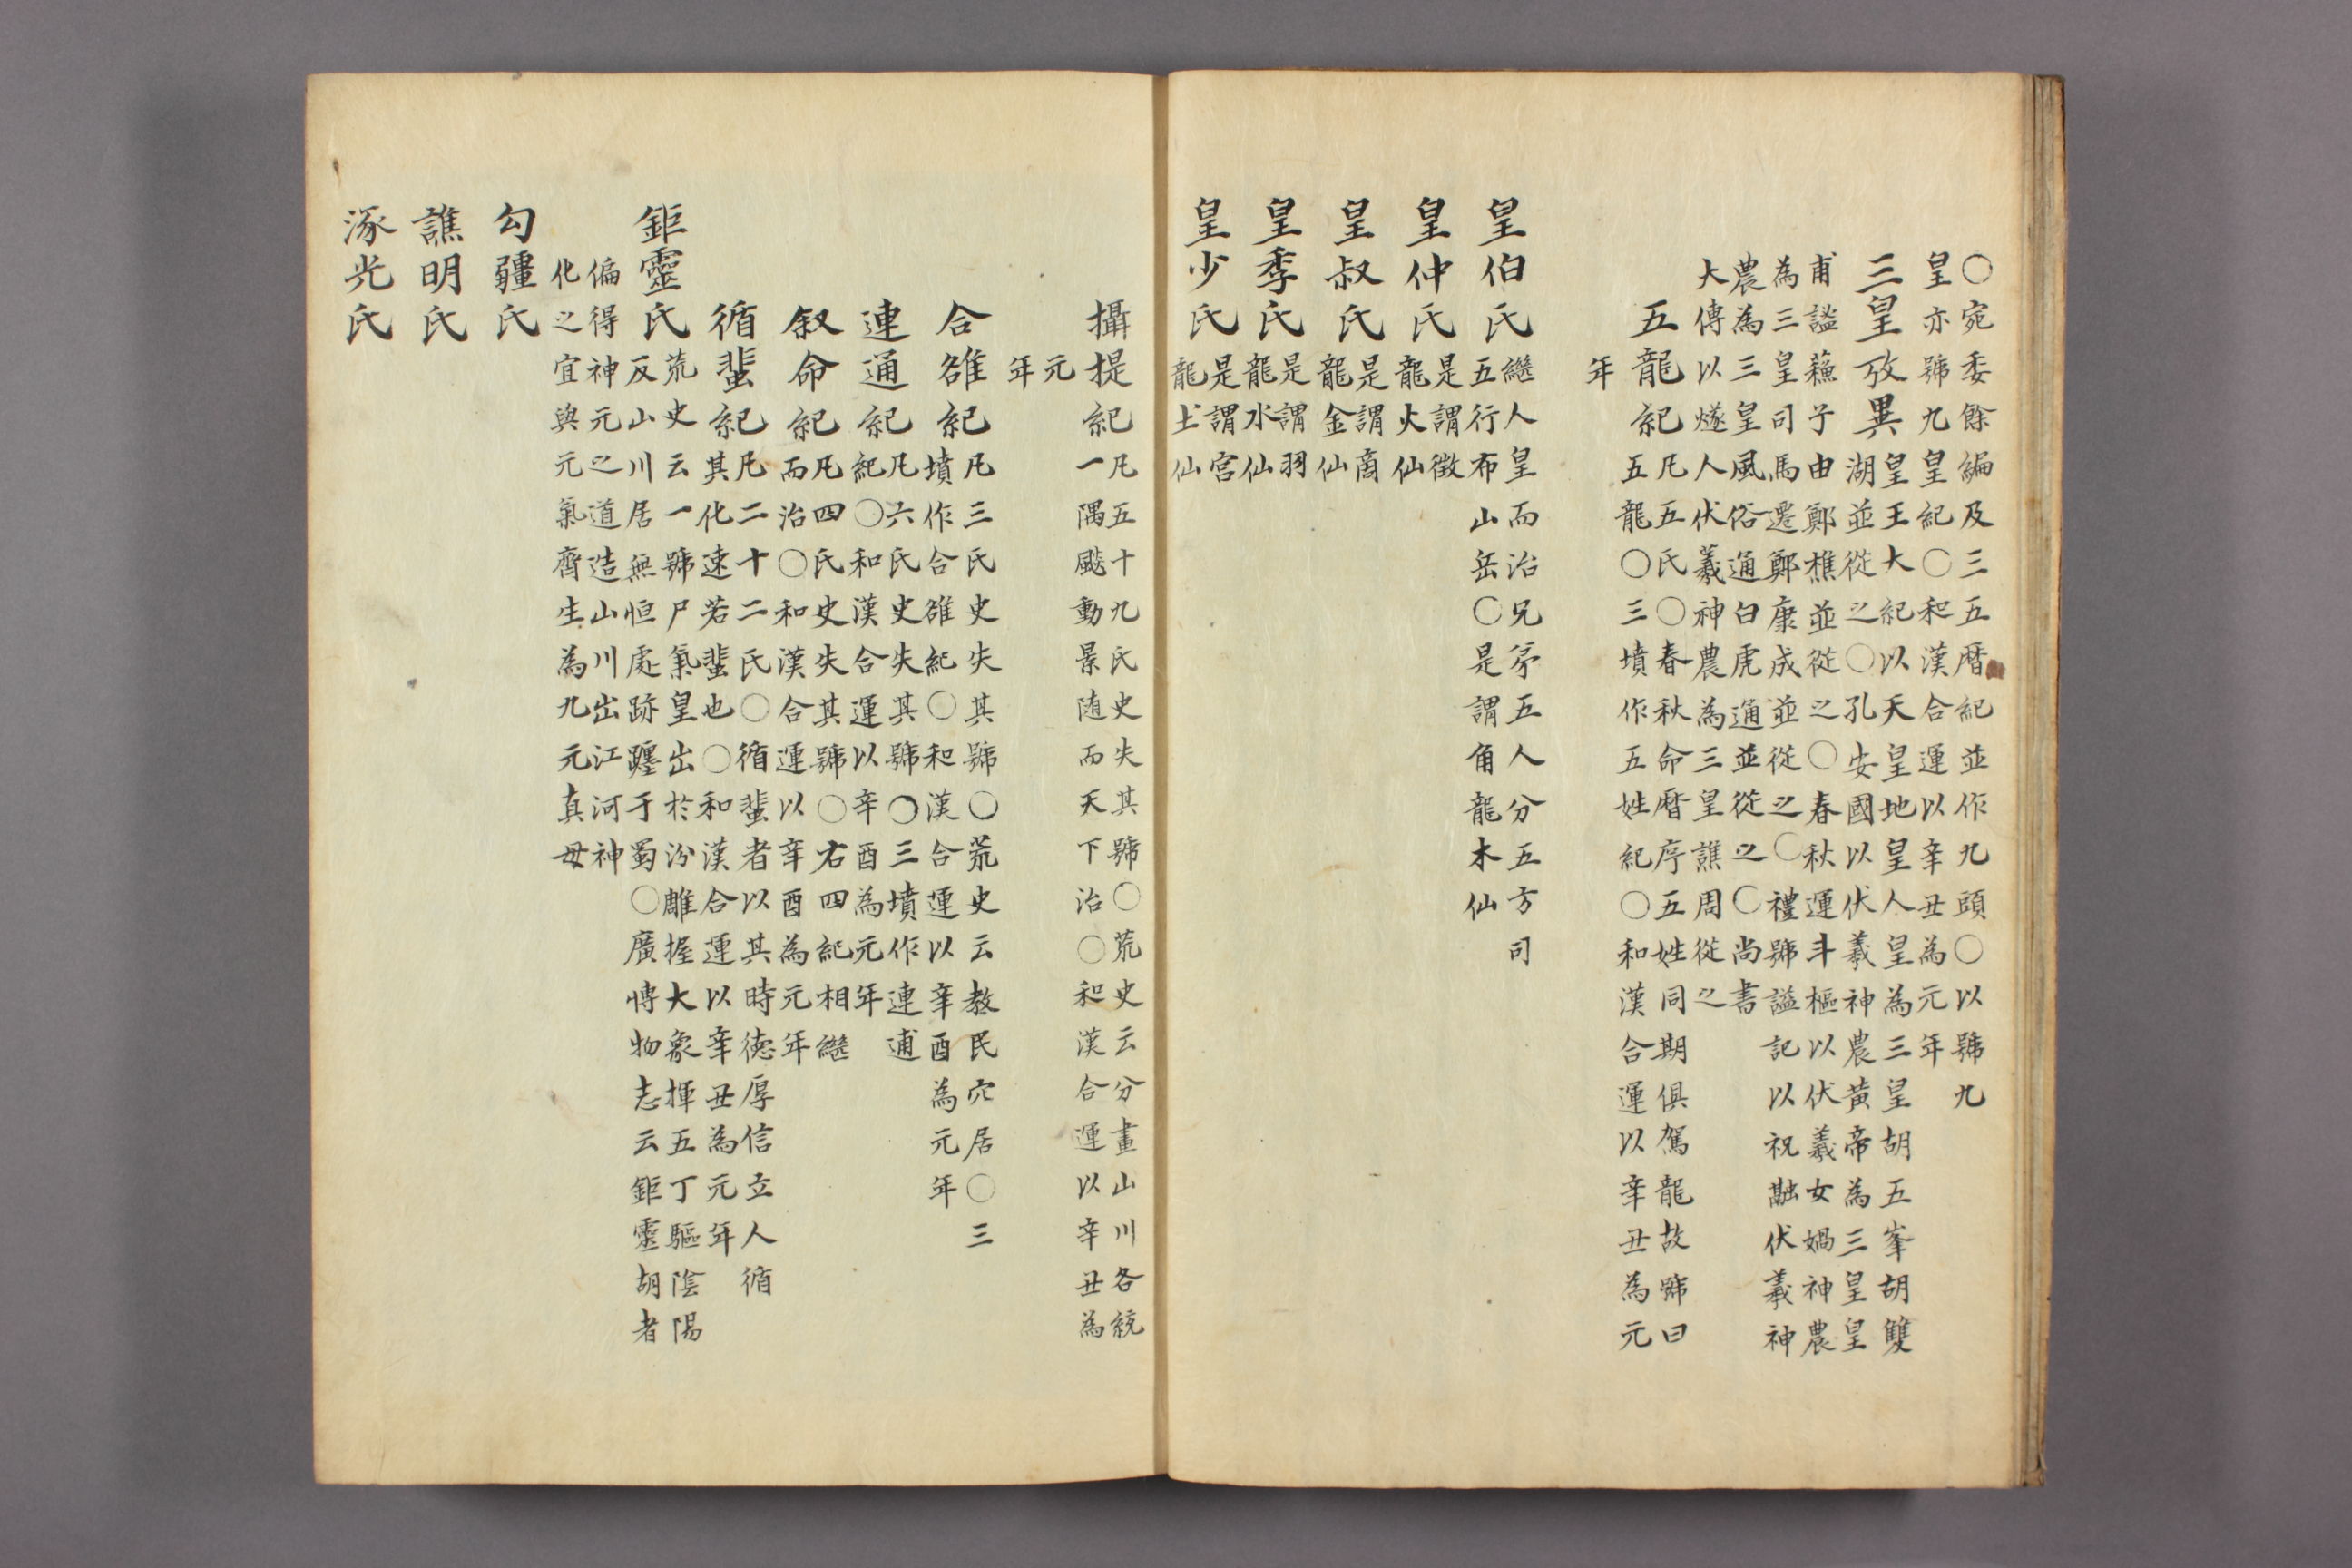 〇宛委餘編及三五暦紀並作九頭〇以號九
皇亦號九皇紀〇和漢合運以辛丑為元年
三皇攷異皇王大紀以天皇地皇人皇為三皇胡五峯胡雙
湖並從之〇孔安國以伏羲神農黃帝為三皇皇
甫謐蘓子由鄭樵並從之〇春秋運斗樞以伏羲女媧神農
為三皇司馬遷鄭康成並從之〇禮號謚記以祝融伏羲神
農為三皇風俗通白虎通並從之〇尚書
大傳以燧人伏羲神農為三皇譙周從之
五龍紀凡五氏〇春秋命暦序五姓同期俱駕龍故號曰
五龍〇三墳作五姓紀〇和漢合運以辛丑為元
年
皇伯氏繼人皇而治兄弟五人分五方司
五行布山岳〇是謂角龍木仙
皇仲氏是謂徴
龍火仙
皇叔氏是謂商
龍金仙
皇季氏是謂羽
龍水仙
皇少氏是謂宮
龍土仙
攝提紀凡五十九氏史失其號〇荒史云分畫山川各統
一隅颷動景随而天下治〇和漢合運以辛丑為
元
年
合雒紀凡三氏史失其號〇荒史云教民穴居〇三
墳作合雒紀〇和漢合運以辛酉為元年
連通紀凡六氏史失其號〇三墳作連逋
紀〇和漢合運以辛酉為元年
叙命紀凡四氏史失其號〇右四紀相繼
而治〇和漢合運以辛酉為元年
循蜚紀凡二十二氏〇循蜚者以其時徳厚信立人循
其化速若蜚也〇和漢合運以辛丑為元年
鉅靈氏荒史云一號尸氣皇出於汾雎握大象揮五丁驅陰陽
反山川居無恒處跡躔于蜀〇廣慱物志云鉅靈胡者
偏得神元之道造山川出江河神
化之宜與元氣齊生為九元真母
勾疆氏
譙明氏
涿光氏